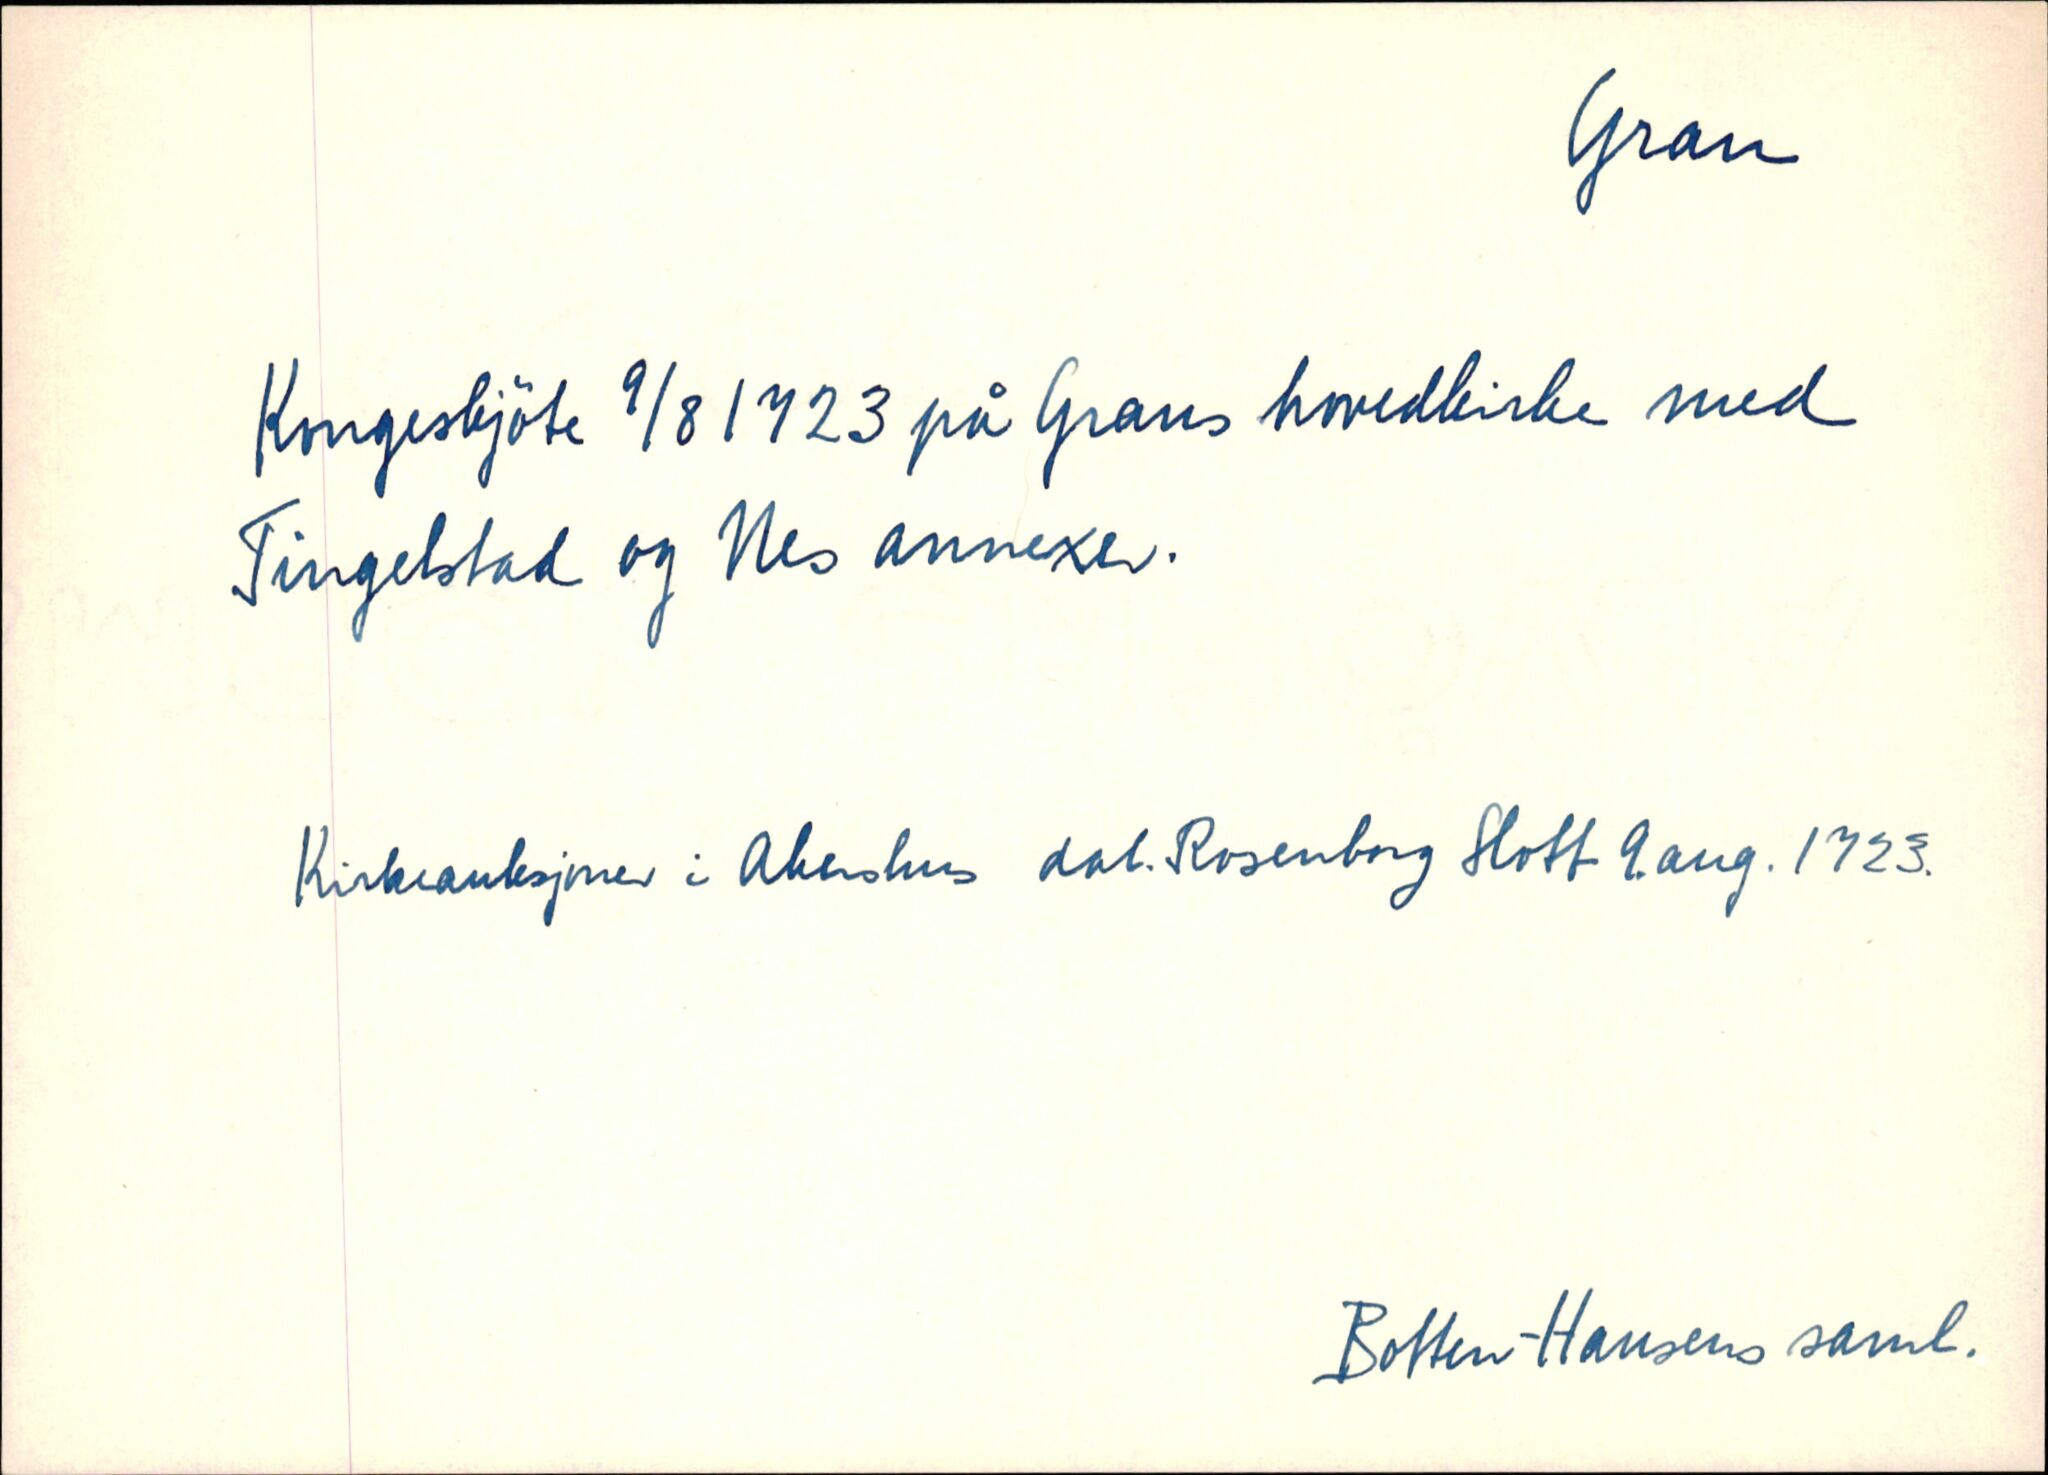 Gran
Kongeskjöte 9/8 1723 på Grans hovedkirke med
Tingelstad og Nes annexer.
Kirkeauksjoner i Akershus dat. Rosenborg Slott 9. aug. 1723.
Botten-Hansens saml.